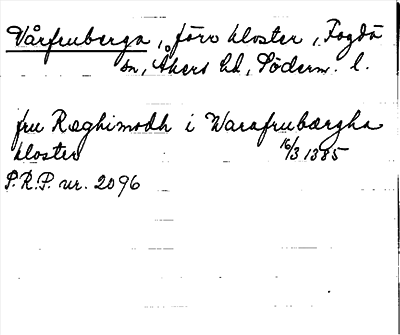 Vårfruberga, förv kloster, Fogdö
sn, Åkers hd, Söderm. l.
fru Ræghimodh i Warafrubærgha
kloster 16/3 1385
S.R.P. nr. 2096